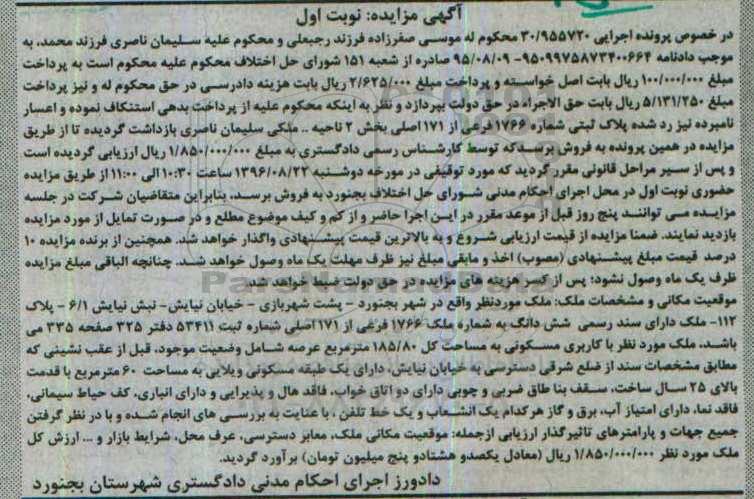 آگهی مزایده: نوبت اول
در خصوص پرونده اجرایی ۳۰/۹۵۵۷۲۰ محکوم له موسی صفرزاده فرزند رجبعلی و محکوم علیه سلیمان ناصری فرزند محمد، به
موجب دادنامه ۹۵۰۹۹۷۵۸۷۳۴۰۰۶۶۴- ۹۵/۰۸/۰۹ صادره از شعبه ۱۵۱ شورای حل اختلاف محکوم علیه محکوم است به پرداخت
مبلغ ۱۰۰/۰۰۰/۰۰۰ ریال بابت اصل خواسته و پرداخت مبلغ ۲/۶۲۵/۰۰۰ ریال بابت هزینه دادرسی در حق محکوم له و نیز پرداخت
مبلغ ۵/۱۳۱/۲۵۰ ریال بابت حق الاجراء در حق دولت بپردازد و نظر به اینکه محکوم علیه از پرداخت بدهی استنکاف نموده و اعسار
نامبرده نیز رد شده پلاک ثبتی شماره ۱۷۶۶ فرعی از ۱۷۱ اصلی بخش ۲ ناحیه .. ملکی سلیمان ناصری بازداشت گردیده تا از طریق
مزایده در همین پرونده به فروش برسد که توسط کارشناس رسمی دادگستری به مبلغ ۱/۸۵۰/۰۰۰/۰۰۰ ریال ارزیابی گردیده است
و پس از سیر مراحل قانونی مقرر گردید که مورد توقیفی در مورخه دوشنبه ۱۳۹۶/۰۸/۲۲ ساعت ۱۰:۳۰ الی ۱۱:۰۰ از طریق مزایده
حضوری نوبت اول در محل اجرای احکام مدنی شورای حل اختلاف بجنورد به فروش برسد، بنابراین متقاضیان شرکت در جلسه
مزایده می توانند پنج روز قبل از موعد مقرر در این اجرا حاضر و از کم و کیف موضوع مطلع و در صورت تمایل از مورد مزایده
بازدید نمایند. ضمنا مزایده از قیمت ارزیابی شروع و به بالاترین قیمت پیشنهادی واگذار خواهد شد. همچنین از برنده مزایده ۱۰
درصد قیمت مبلغ پیشنهادی (مصوب) اخذ و مابقی مبلغ نیز ظرف مهلت یک ماه وصول خواهد شد. چنانچه الباقی مبلغ مزایده
ظرف یک ماه وصول نشود؛ پس از کسر هزینه های مزایده در حق دولت ضبط خواهد شد.
موقعیت مکانی و مشخصات ملک: ملک موردنظر واقع در شهر بجنورد - پشت شهربازی - خیابان نیایش- نبش نیایش ۶/۱ - پلاک
۱۱۲- ملک دارای سند رسمی شش دانگ به شماره ملک ۱۷۶۶ فرعی از ۱۷۱ اصلی شماره ثبت ۵۳۴۱۱ دفتر ۳۲۵ صفحه ۳۳۵ می
باشد. ملک مورد نظر با کاربری مسکونی به مساحت کل ۱۸۵/۸۰ مترمربع عرصه شامل وضعیت موجود، قبل از عقب نشینی که
مطابق مشخصات سند از ضلع شرقی دسترسی به خیابان نیایش، دارای یک طبقه مسکونی ویلایی به مساحت ۶۰ مترمربع با قدمت
بالای ۲۵ سال ساخت، سقف بنا طاق ضربی و چوبی دارای دو اتاق خواب، فاقد هال و پذیرایی و دارای انباری، کف حیاط سیمانی،
فاقد نما، دارای امتیاز آب، برق و گاز هرکدام یک انشعاب و یک خط تلفن ، با عنایت به بررسی های انجام شده و با در نظر گرفتن
جمیع جهات و پارامترهای تاثیرگذار ارزیابی ازجمله: موقعیت مکانی ملک، معابر دسترسی، عرف محل، شرایط بازار و ... ارزش کل
ملک مورد نظر ۱/۸۵۰/۰۰۰/۰۰۰ ریال (معادل یکصدو هشتادو پنج میلیون تومان) برآورد گردید.
دادورز اجرای احکام مدنی دادگستری شهرستان بجنورد